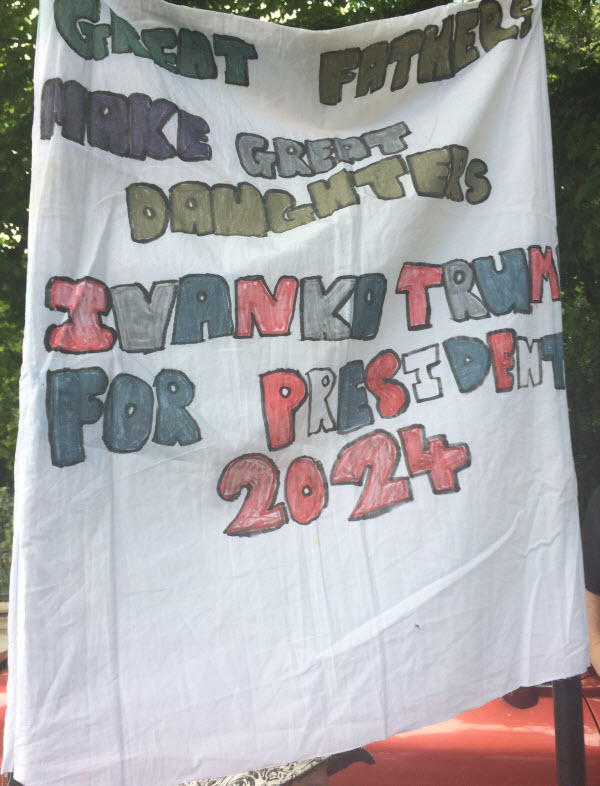 GREAT FATHERS
MAKE GREAT
DAUGHTERS
IVANKO TRUM
FOR PRESIDENT
2024